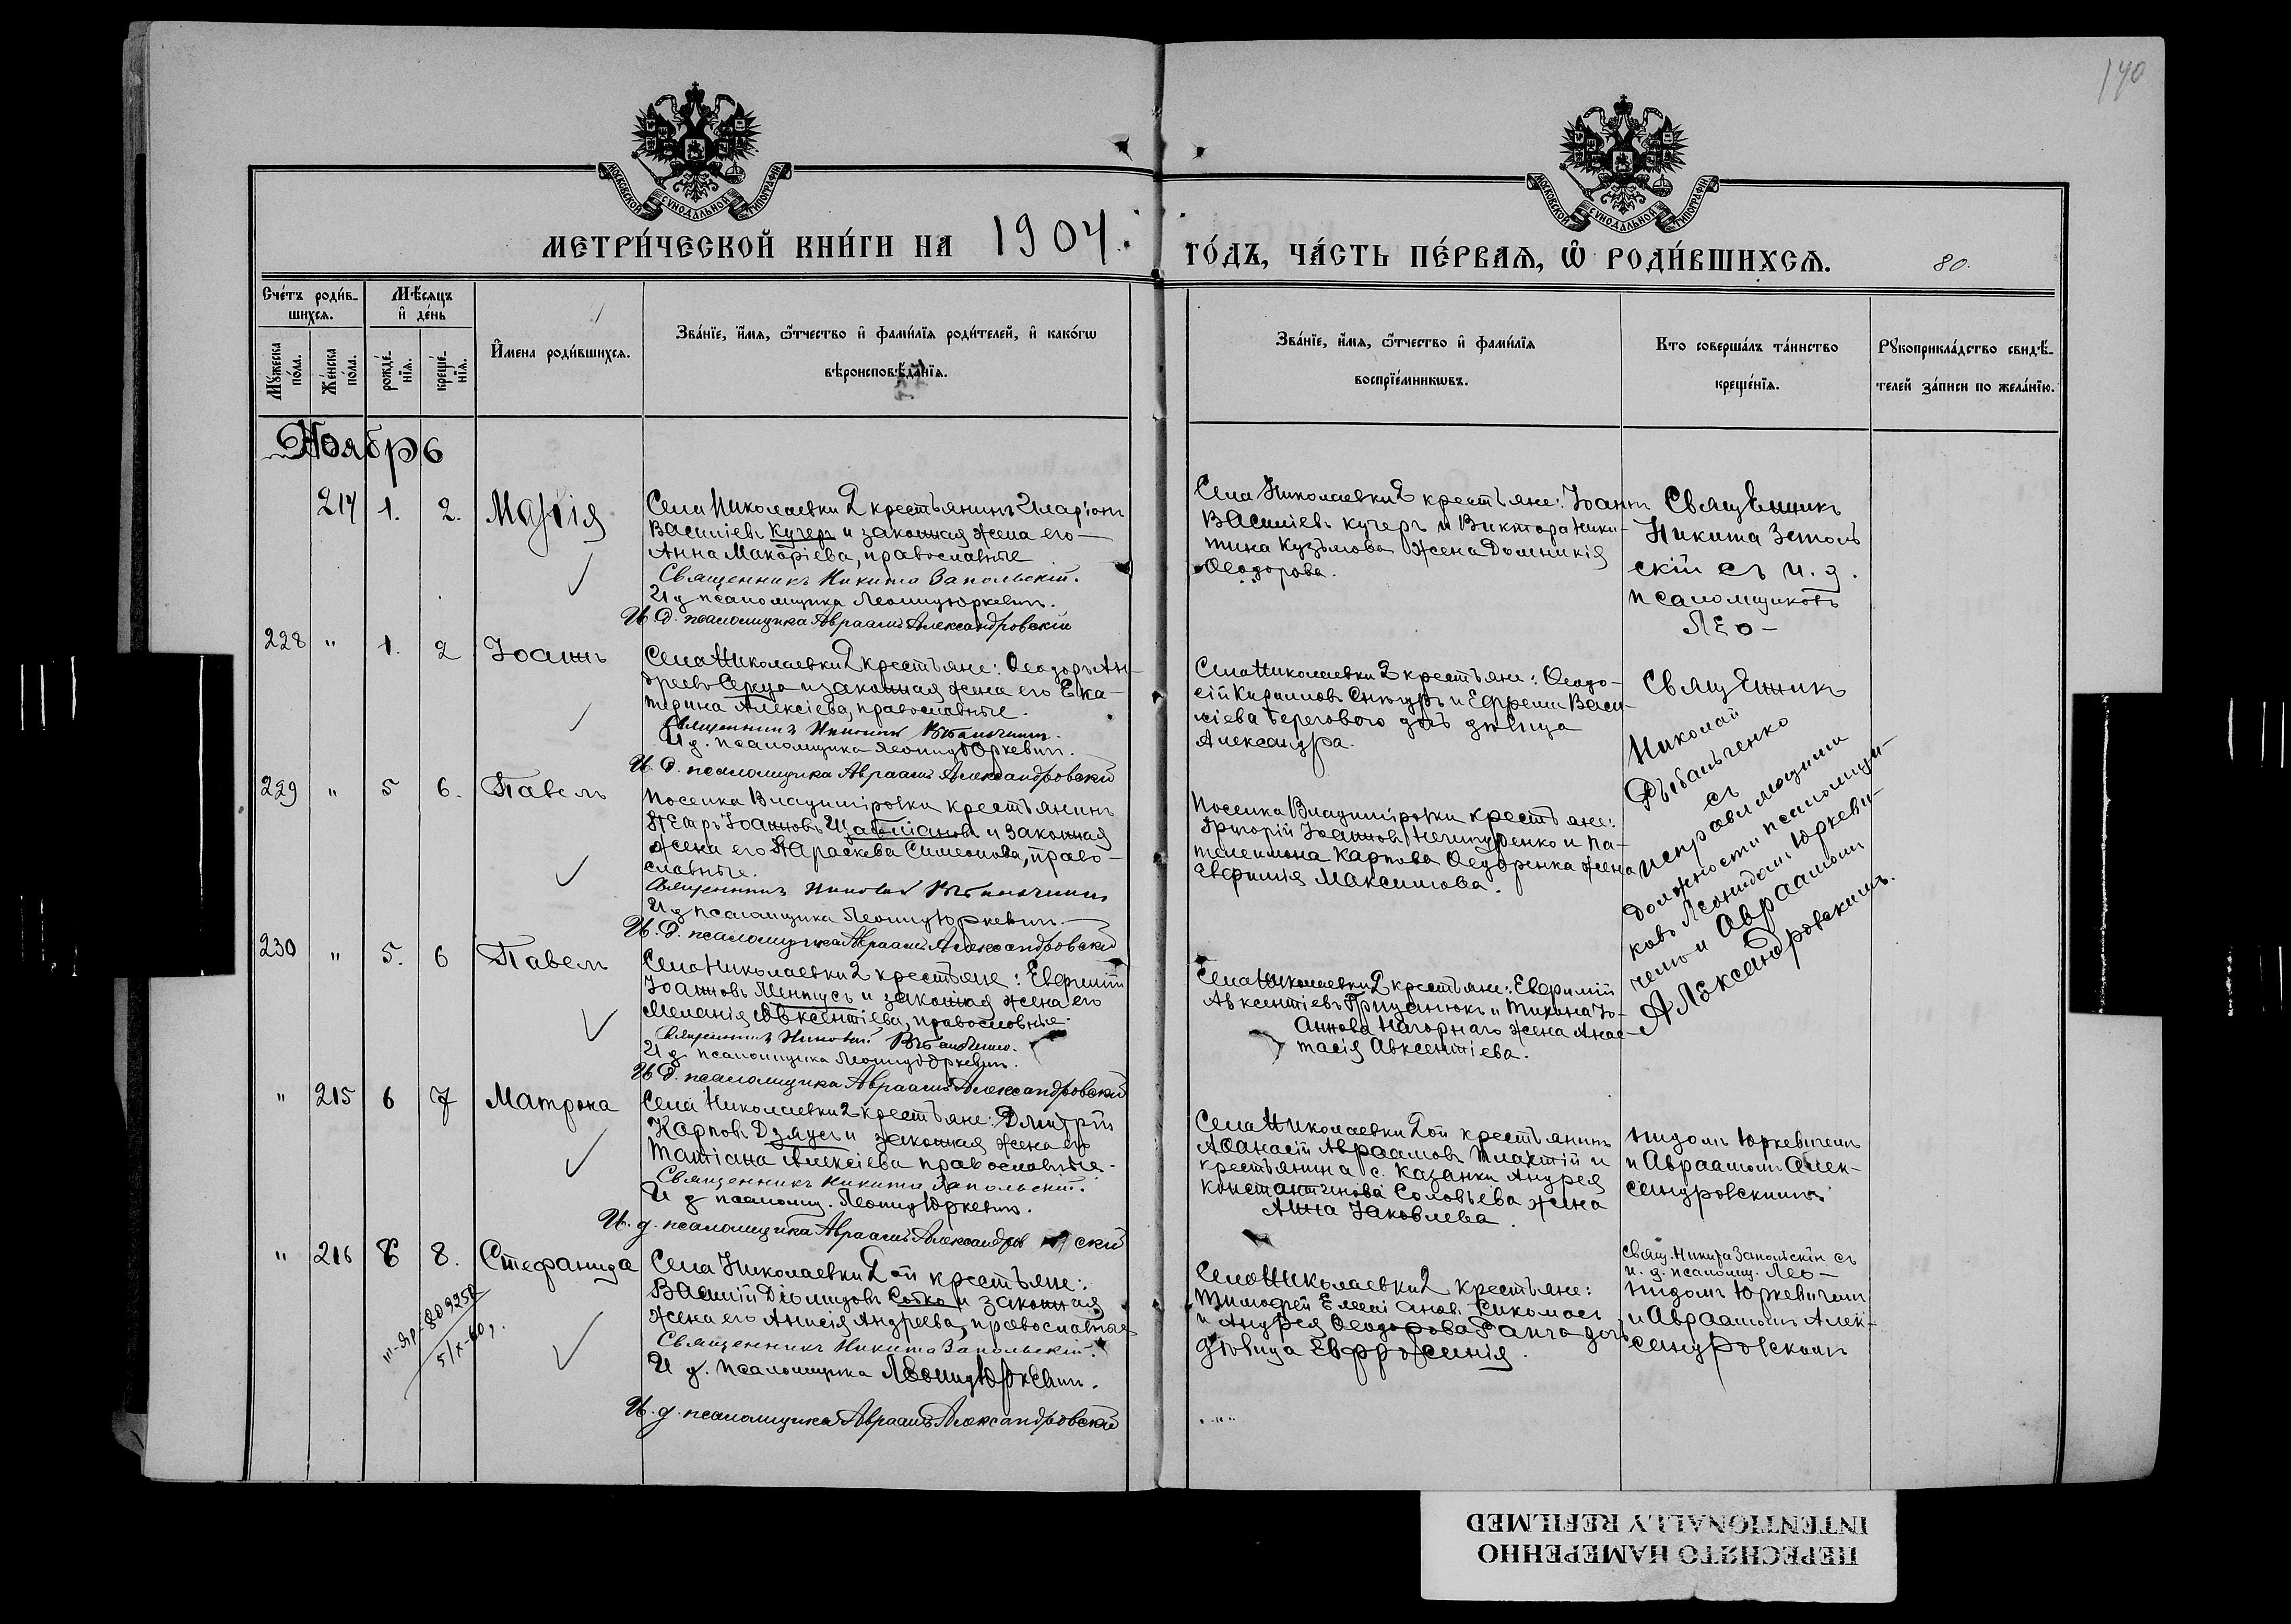 140
МОСКОВСКОЙ СѴНОДАЛЬНОЙ ТИПОГРАФІИ
МОСКОВСКОЙ СѴНОДАЛЬНОЙ ТИПОГРАФІИ
МЕТРИ́ЧЕСКОЙ КНИ́ГИ НА 1904.
ГО́ДЪ, ЧА́СТЬ ПЕ́РВАѦ, Ѽ РОДИ́ВШИХСѦ.
80.
Сче́тъ роди́в-
шихсѧ.
Мꙋ́жеска
по́ла.
Же́нска
по́ла.
Мѣ́сѧцъ
и҆ де́нь
рожде́-
нїѧ.
креще́-
нїѧ.
И҆мена̀ роди́вшихсѧ.
Зва́нїе, и҆́мѧ, ѻ҆́тчество и҆ фами́лїѧ роди́телей, и҆ како́гѡ
вѣроисповѣ́данїѧ.
Зва́нїе, и҆́мѧ, ѻ҆́тчество и҆ фами́лїѧ
воспрїе́мникѡвъ.
Кто соверша́лъ та́инство
креще́нїѧ.
Рꙋкоприкла́дство свидѣ́-
телей за́писи по жела́нїю.
Ноябрь
214 1. 2. Марія
Села Николаевки 2 крестьянинъ Иларіонъ
Василіевъ Кучеръ и законная жена его
Анна Макаріева, православные
Священникъ Никита Запольскій.
И д псаломщика Леонид Юркевич.
И. д. псаломщика Авраамъ Александровскій
Села Николаевки 2 крестьяне: Іоанн
Василіевъ Кучеръ и Виктора Ники-
тина Кузьмова жена Домникія
Ѳеодорова.
Священникъ
Никита Запольскій
скій съ и. д.
псаломщиковъ
Лео-
228 " 1. 2 Іоаннъ
Села Николаевки 2 крестьяне: Ѳеодоръ Ан-
дреевъ Середа и законная жена его Ека-
терина Алексіева, православные.
Священникъ Николай Рыбальченко.
И д. псаломщика Леонид Юркевич.
И. д. псаломщика Авраамъ Александровскій
Села Николаевки 2 крестьяне: Ѳеодо-
сій Кирилловъ Снѣгуръ и Ефрема Васи-
ліева Берегового дочь дѣвица
Александра.
Священникъ
Николай
Рыбальченко
съ
исправляющими
должности псаломщи-
ковъ Леонидомъ Юркеви-
чемъ и Авраамомъ
Александровскимъ.
229 " 5 6. Павелъ
Поселка Владиміровки крестьянинъ
Петръ Іоанновъ и законная
жена его Параскева Симеонова, право-
славные.
Священникъ Николай Рыбальченко
И д псаломщика Леонид Юркевич.
И. д. псаломщика Авраамъ Александровскій
Поселка Владиміровки крестьяне:
Григорій Іоанновъ Нечипуренко и Па-
телеимона Карпова Ѳедоренка жена
Евфимія Максимова.
230 " 5. 6 Павелъ
Села Николаевки 2 крестьяне: Евфимій
Іоанновъ и законная жена его
Меланія Авксентіева, православные.
Священникъ Николай Рыбальченко.
И д псаломщика Леонид Юркевич.
И. д. псаломщика Авраамъ Александровскій
Села Николаевки 2 крестьяне: Евфимій
Авксентіевъ Грицанюкъ и Тихона Іо-
аннова Нагорнаго жена Анас-
тасія Авксентіева.
" 215 6 7 Матрона
Села Николаевки 2 крестьяне: Дмитрій
Карповъ Дзяусъ и законная жена его
Татіана Алексіева православные.
Священникъ Никита Запольскій.
И д псаломщ. Леонид Юркевич.
И. д. псаломщика Авраамъ Александровскій
Села Николаевки 2ой крестьянинъ
Аѳанасій Авраамовъ и
крестьянина с. Казанки Андрея
Константинова Соловьева жена
Анна Іаковлева.
нидомъ Юркевичемъ
и Авраамомъ Алек-
сандровскимъ
" 216 6 8. Стефанида
809250
5/X-60 г.
Села Николаевки 2ой крестьяне:
Василій Діомидовъ Собко и законная
жена его Анисія Андреева, православные
Священникъ Никита Запольскій.
И д. псаломщика Леонид Юркевич.
И. д. псаломщика Авраамъ Александровскій
Села Николаевки 2 крестьяне:
Тимофей
и Андрея Ѳеодорова дочь
дѣвица Евфросинія.
Свящ. Никита Запольскій съ
и. д. псаломщ. Лео-
нидомъ Юркевичемъ
и Авраамомъ Алек-
сандровскимъ
ПЕРЕСНЯТО НАМЕРЕННО
INTENTIONALLY REFILMED